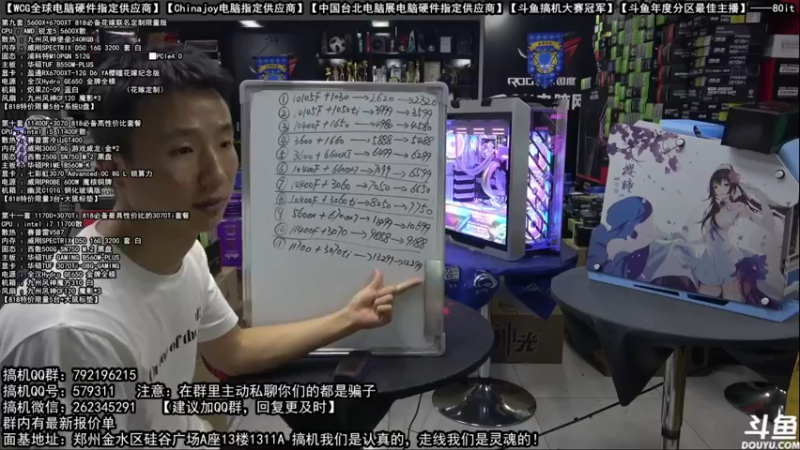 【WCG全球电脑硬件指定供应商】【Chinajoy电脑指定供应商】【中国台北电脑展电脑硬件指定供应商】【斗鱼搞机大赛冠军】【斗鱼年度分区最佳主播】——80it
第九套 5600X+6700XT 818必备花嫁联名定制限量版
CPU: AMD 锐龙5 5600X散
散热: 九州风神堡垒240RGB
内存: 威刚SPECTRIX D50 16G 3200 套 白
固态: 浦科特M10PGN 512G PCIe4.0
主板: 华硕TUF B550M-PLUS
显卡: 盈通RX6700XT-12G D6 YA樱瞳花嫁纪念版
电源: 全汉Hydro GE650 金牌全模
机箱: 炽果Z0-09 蓝白 (花嫁定制)
风扇: 九州风神CF120 魔影*3
【818特价限量5台+系统U盘】
第十套 11400F+3070 818必备高性价比套餐
CPU: intel i5 11400F散
内存: 威刚3000 8G 游戏威龙-金*2
固态: 西数250G SN750 M.2黑盘
主板: 华硕PRIME B560M-K
显卡: 七彩虹3070 Advanced OC 8G L 锁算力
电源: 威刚PROBE 600W 魔核铜牌
【818特价限量3台+大鼠标垫】
第十一套 11700+3070Ti 818必备最具性价比的3070Ti套餐
CPU: intel i7 11700散
内存: 威刚SPECTRIX D50 16G 3200 套 白
固态: 西数500G SN750 M.2黑盘
主板: 华硕TUF GAMING B560M-PLUS
显卡: 华硕TUF 3070Ti-O8G-GAMING
电源: 全汉Hydro GE650 金牌全模
机箱: 九州风神魔方310 白
风扇: 九州风神CF120 魔影*3
【818特价限量5台+大鼠标垫】
① 10105F+1030→2620→2320
② 10105F+1050ti→3999→3599
③ 10400F+1650→4980→4580
④ 3600+1660→5888→5488
⑦ 10400F+3060→7050→6650
⑧ 10400F+3060ti→8050→7750
⑩ 11400F+3070→9888→9188
⑪ 11700+3070ti→13299→12299
ROG
搞机QQ群: 792196215
搞机QQ号: 579311 注意: 在群里主动私聊你们的都是骗子
搞机微信: 262345291 【建议加QQ群,回复更及时】
群内有最新报价单
面基地址: 郑州金水区硅谷广场A座13楼1311A 搞机我们是认真的,走线我们是灵魂的!
斗鱼
DOUYU.COM